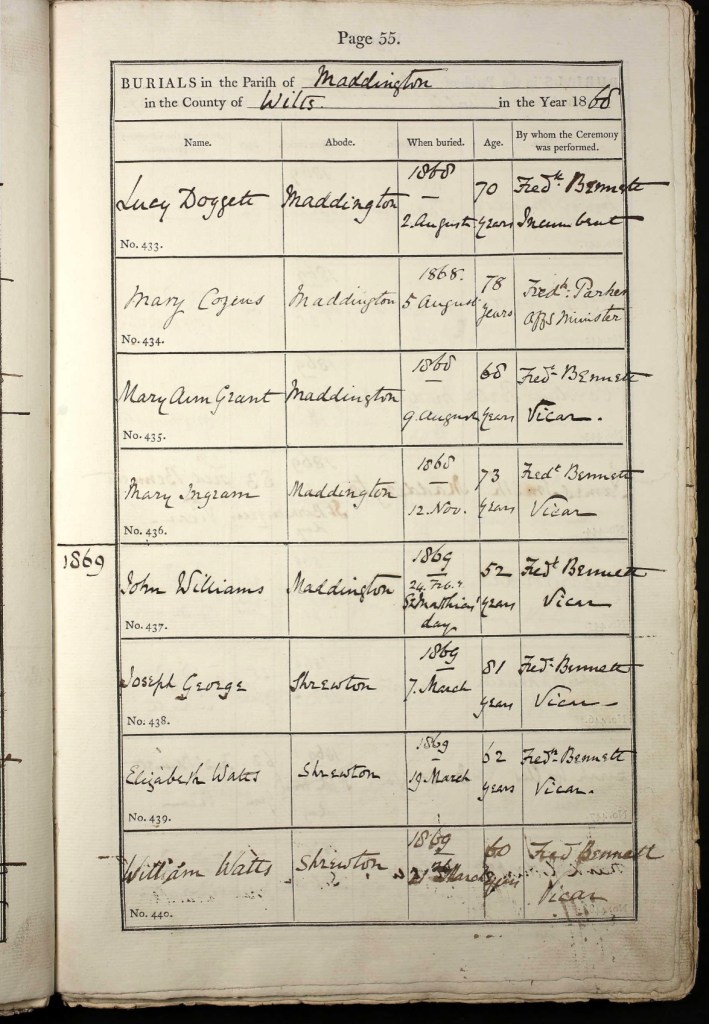 Page 55.
BURIALS in the Parish of Maddington
in the County of Wilts. in the Year 1868
Name. Abode. When buried. Age. By whom the Ceremony was performed.
Lucy Doggett Maddington 1868 2. August 70 years Fredk. Bennett Incumbent
No. 433.
Mary Cozens Maddington 1868. 5 August 78 years Fredk. Parker Offg Minister
No. 434.
Mary Ann Grant Maddington 1868 9. August 68 years Fredk. Bennett Vicar.
No. 435.
Mary Ingram Maddington 1868 12. Nov. 73 years Fredk. Bennett Vicar
No. 436.
1869
John Williams Maddington 1869 24. Feb.y St Mathias' day 52 years Fredk. Bennett Vicar
No. 437.
Joseph George Shrewton 1869 7. March 81 years Fredk. Bennett Vicar
No. 438.
Elizabeth Watts Shrewton 1869 19 March 62 years Fredk. Bennett Vicar.
No. 439.
William Watts Shrewton 1869 March 60 years Fred Bennett Vicar
No. 440.